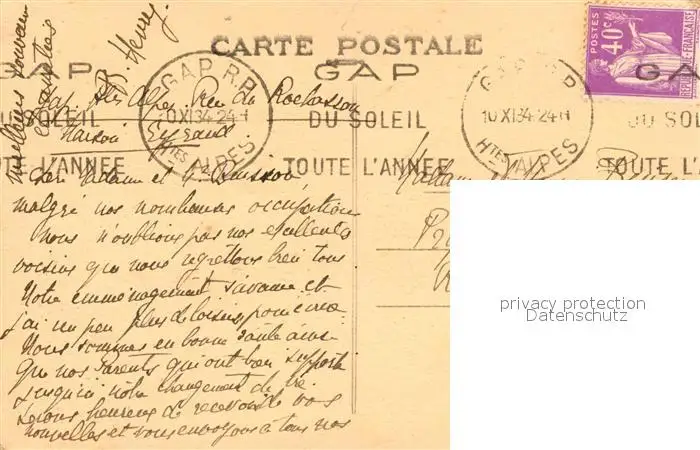 CARTE POSTALE
POSTES
40c
REPUBLIQUE FRANÇAISE
GAP
GAP
GAP
GAP R.P
10 XI 34 24H
Htes ALPES
GAP R.P
10 XI 34 24H
Htes ALPES
DU SOLEIL
DU SOLEIL
DU SOLEIL
TOUTE L'ANNÉE
TOUTE L'ANNÉE
TOUTE L'ANNÉE
Gap Htes Alpes Rue du
Maison Eyraud
Madame et
malgré nos nombreuses occupations
nous n'oublions pas nos excellents
voisins que nous regrettons bien tous
Notre emménagement s'avance et
j'ai un peu plus de loisirs
Nous sommes en bonne santé ainsi
que nos Parents qui ont bien supporté
jusqu'ici notre changement de vie.
Serions heureux de recevoir de vos
nouvelles et vous envoyons à tous nos
meilleurs souvenirs
B. Henry
privacy protection
Datenschutz